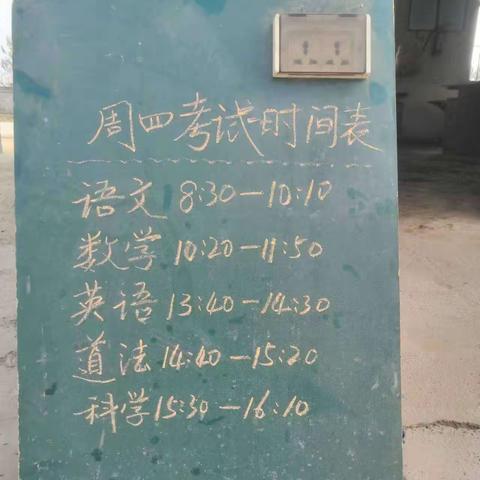 周四考试时间表
语文 8:30-10:10
数学 10:20-11:50
英语 13:40-14:30
道法 14:40-15:20
科学 15:30-16:10